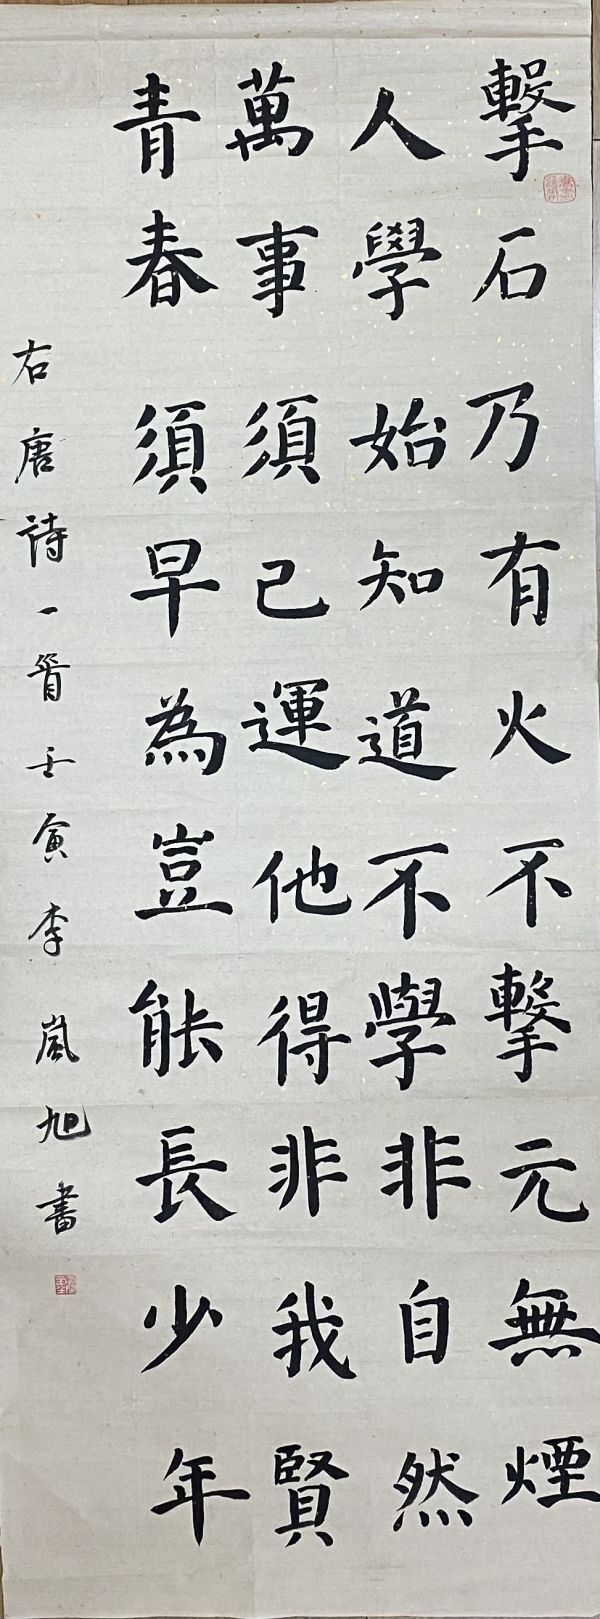 擊石乃有火不擊元無煙
人學始知道不學非自然
萬事須己運他得非我賢
青春須早為豈能長少年
右唐詩一首壬寅李嵐旭書